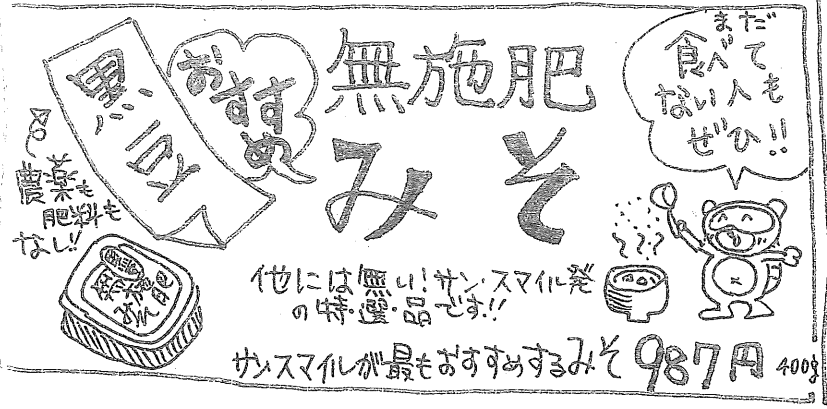 黒豆
おすすめ
無施肥
みそ
まだ
食べて
ない人も
ぜひ!!
農薬も
肥料も
なし!!
他には無い!サン・スマイル発
の特・選・品です!!
サンスマイルが最もおすすめするみそ 987円 400g